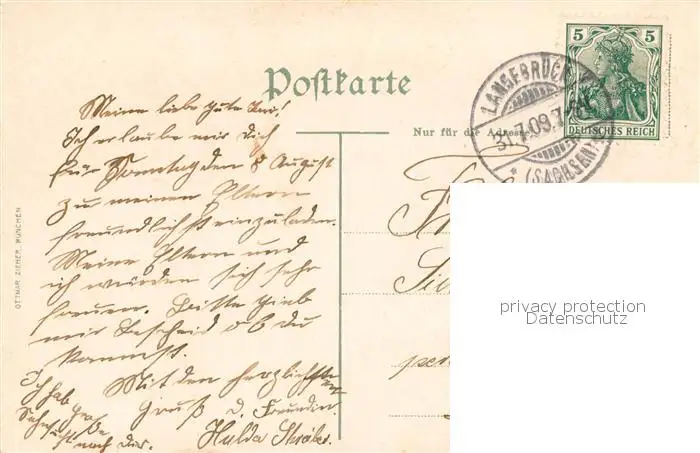 Postkarte
Nur für die Adresse
LANGEBRÜCK
31.7.09.7-8
* (SACHSEN)
5 5
DEUTSCHES REICH
Meine liebe gute
Ich erlaube mir dich
für Sonntag den 8 August
zu meinen Eltern
freundlichst einzuladen.
Meine Eltern und
ich würden sich sehr
freuen. Bitte gieb
mir Bescheid ob du
kannst.
Mit den herzlichsten
Gruß d. Freundin
Hulda
Ich hab
große
Sehnsucht nach dir.
OTTMAR ZIEHER, MÜNCHEN
privacy protection
Datenschutz